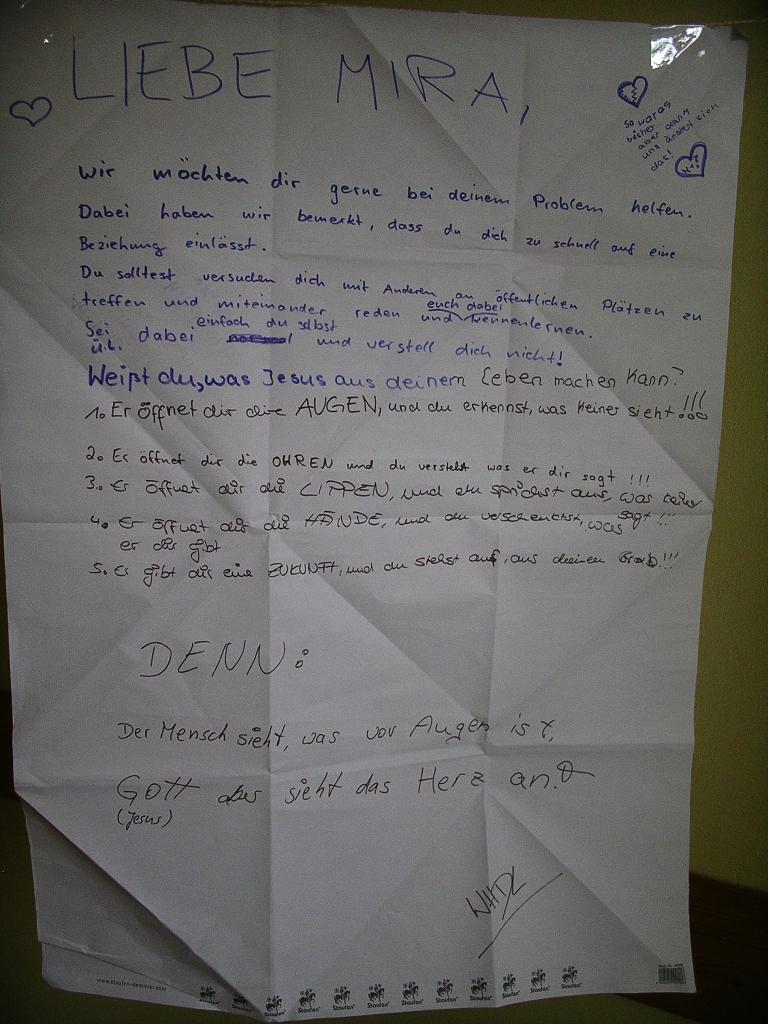 LIEBE MIRA,
so war es
bisher
aber dann
uns ändert sich
das!
Wir möchten dir gerne bei deinem Problem helfen.
Dabei haben wir bemerkt, dass du dich zu schnell auf eine
Beziehung einlässt.
Du solltest versuchen dich mit Anderen an öffentlichen Plätzen zu
treffen und miteinander reden und euch dabei kennenlernen.
Sei dabei einfach du selbst und verstell dich nicht!
ü.L.
Weißt du, was Jesus aus deinem Leben machen kann?
1. Er öffnet dir die AUGEN, und du erkennst, was keiner sieht!!!
2. Er öffnet dir die OHREN und du verstehst was er dir sagt!!!
3. Er öffnet dir die LIPPEN, und du sprichst aus, was keiner sagt!!!
4. Er öffnet dir die HÄNDE, und du verschenkst, was
er dir gibt
5. Er gibt dir eine ZUKUNFT, und du stehst auf, aus deinem Grab!!!
DENN:
Der Mensch sieht, was vor Augen ist,
GOTT aber sieht das Herz an.
(Jesus)
WHDL
www.staufen-demmler.com
Staufen Staufen Staufen Staufen Staufen Staufen Staufen Staufen Staufen Staufen Staufen Staufen